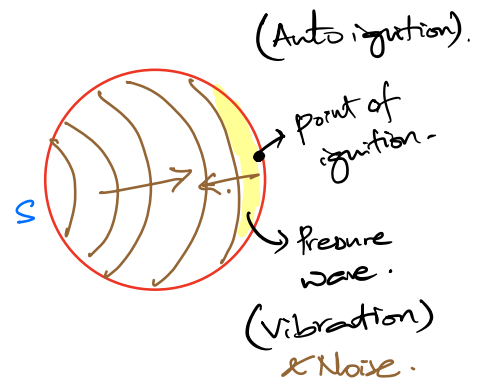 (Auto ignition).
Point of
ignition-
S
Presure
wave.
(Vibration)
& Noise.